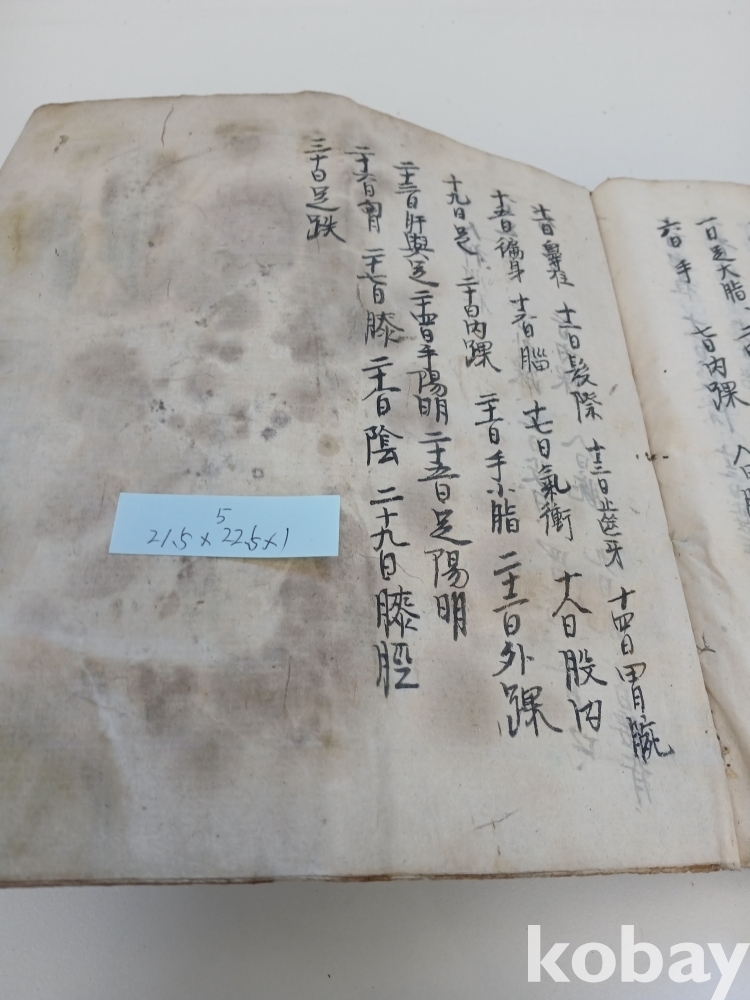 一日足大脂
六日手 七日內踝
十一日鼻柱 十二日髮際 十三日上登牙 十四日胃腕
十五日徧身 十六日腦 十七日氣衝 十八日股內
十九日足 二十日內踝 二十一日手小脂 二十二日外踝
二十三日肝與足 二十四日手陽明 二十五日足陽明
二十六日胷 二十七日膝 二十八日陰 二十九日膝脛
三十日足趺
5
21.5 x 22.5 x 1
kobay